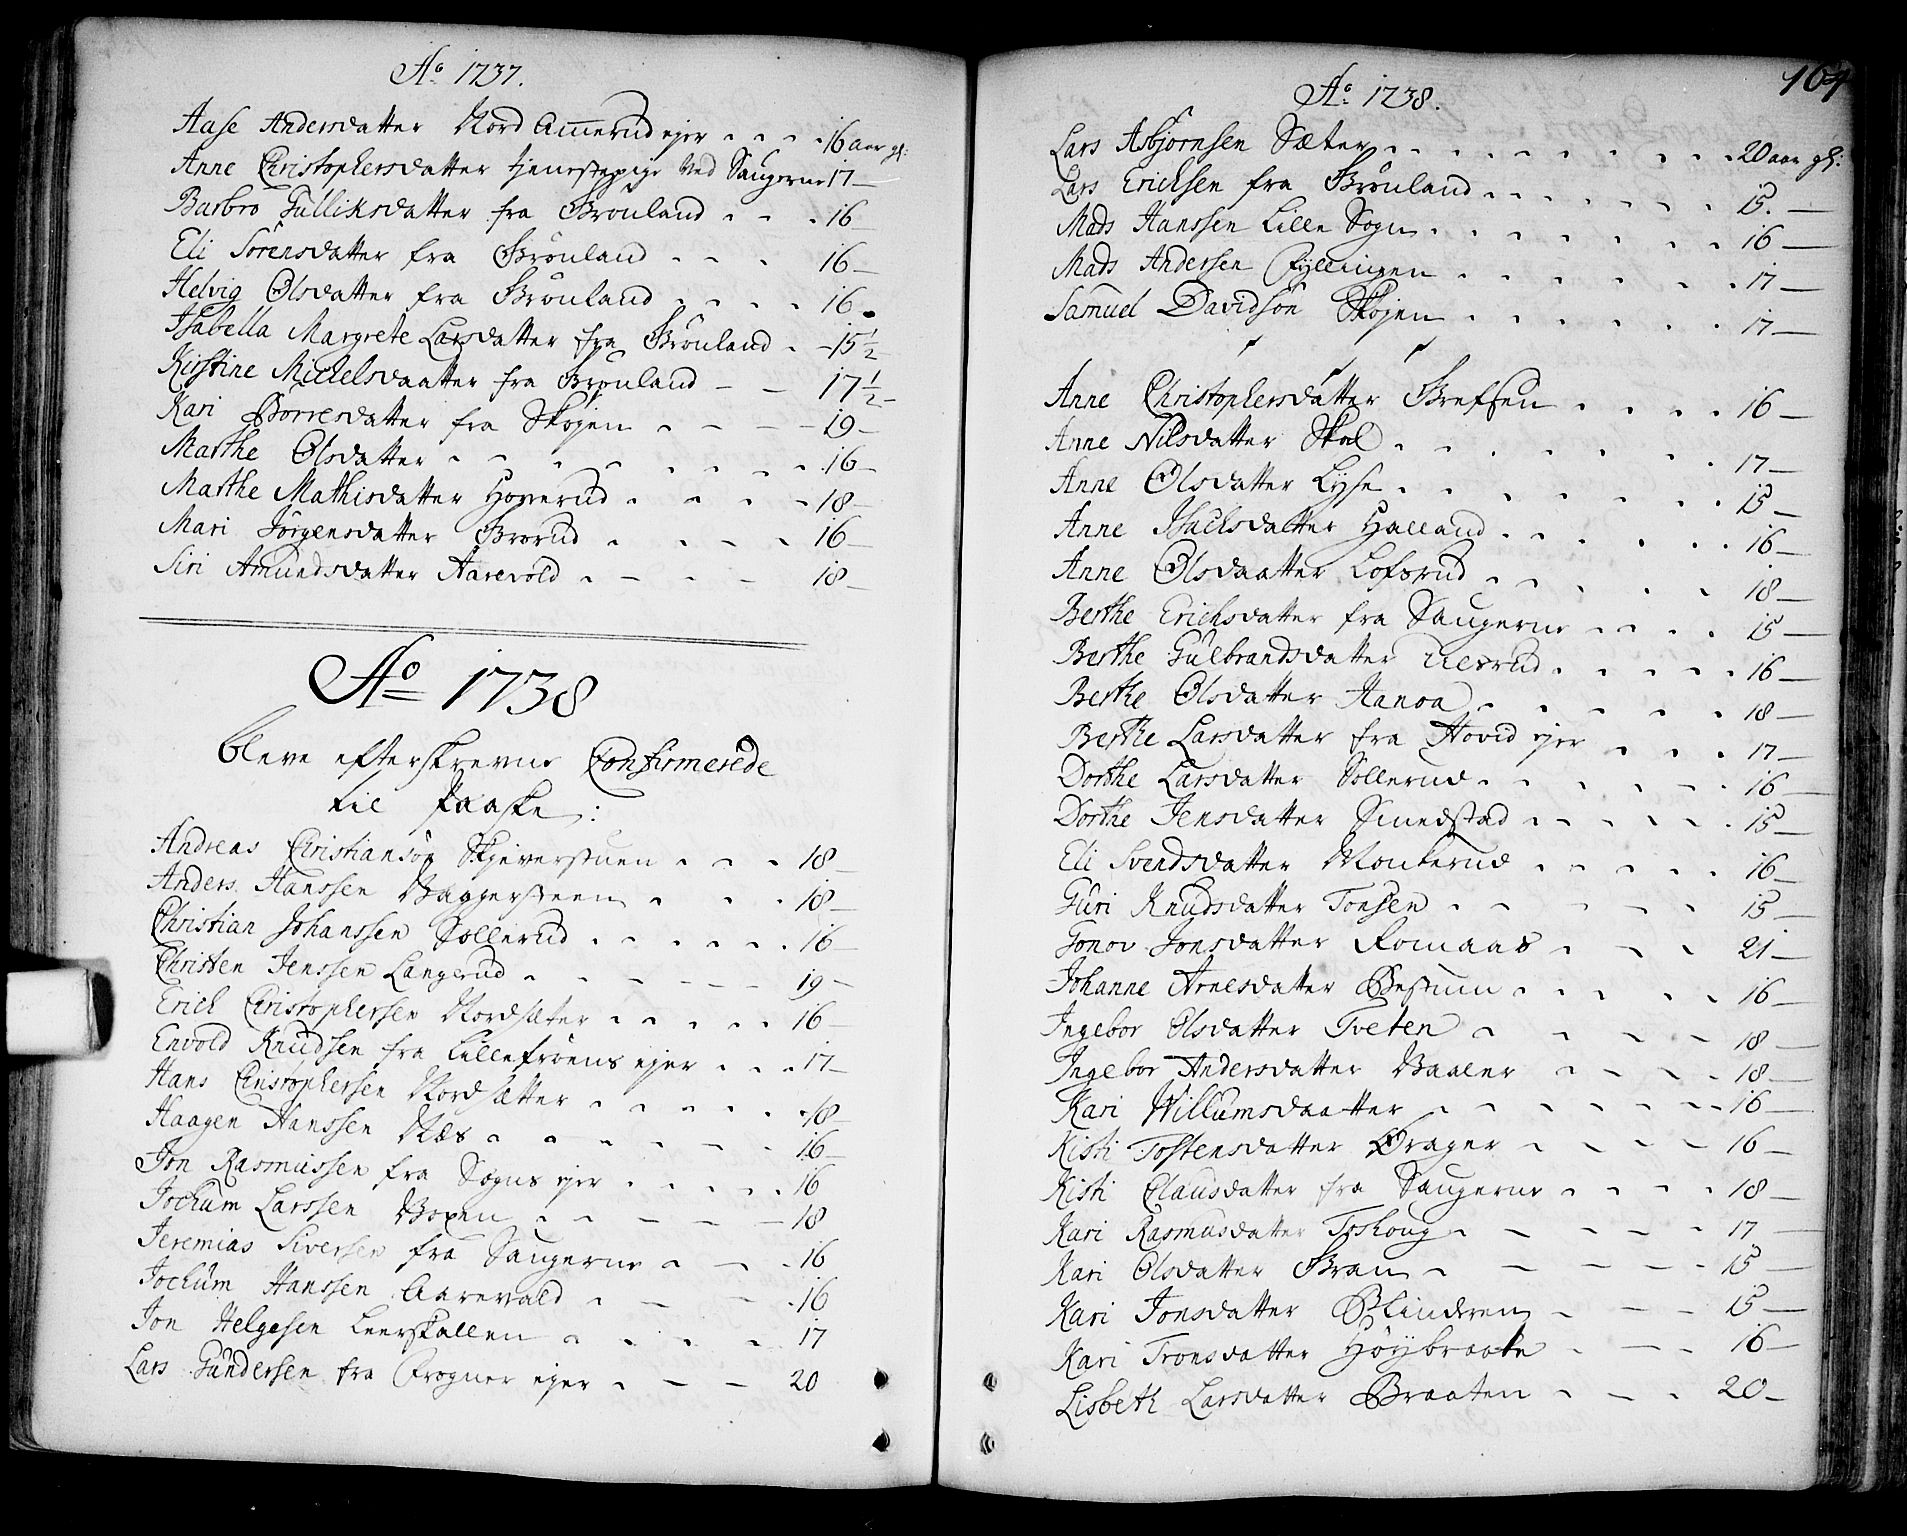 Aº 1737.
Aase Andersdatter Nord Amerud ejer - - - 16 aar gl:
Anne Christophersdatter tjenestepige ved Saugerne 17 —
Barbro Gulliksdatter fra Brönland - - - 16
Eli Sörensdatter fra Grönland - - - 16 —
Helvig Olsdatter fra Grönland - - - - 16.
Isabella Margrete Larsdatter fra Grönland - - 15 1/2
Kirstine Michelsdaatter fra Grönland - - 17 1/2 -
Kari Börresdatter fra Skøjen - - - - 19 -
Marthe Olsdatter - - - - - - - 16 -
Marthe Mathisdatter Hoverud - - - - 18 -
Mari Jörgensdatter Brorud - - - - 16 —
Siri Amundsdatter Aarevold - - - - 18 —
Aº 1738
bleve efterskrevne Confirmerede
til Paaske:
Andreas Christiansön Skjeverstuen - - - 18
Anders Hanssen Baggersteen - - - 18 —
Christian Johanssen Sollerud - - - - - - 16 —
Christen Jenssen Langerud - - - - - - 19 -
Erich Christophersen Nordsæter - - - - - 16
Envold Knudsen fra Lillefröens ejer - - - 17 -
Hans Christophersen Nordsætter - - - - - 18
Haagen Hanssen Næs - - - - - - 16
Jon Rasmussen fra Sogns ejer - - - - - 16
Jochum Larssen Voxen - - - - - 18
Jeremias Siversen fra Saugerne - - - 16
Jochum Hanssen Aarevald - - - - 16
Jon Helgesen Leerskallen - - - - 17
Lars Gundersen fra Frogner ejer - - - 20
164
Aº 1738.
Lars Asbjørnsen Sæter - - - - - - - - 20 aar gl:
Lars Ericksen fra Grönland - - - - - - 15. —
Mads Hanssen Lille Sogn - - - - - - - 16 —
Mads Andersen Fyllingen - - - - - - 17 —
Samuel Davidsön Skøjen - - - - - - 17 —
Anne Christophersdatter Grefsen - - - - 16 —
Anne Nilsdatter Skøl - - - - - - - 17 —
Anne Olsdatter Lyse - - - - - - - 15 —
Anne Isachsdatter Halland - - - - - - 16 —
Anne Olsdaatter Lofsrud - - - - - 18 —
Berthe Erichsdatter fra Saugerne - - - - 15 —
Berthe Gulbrandsdatter Ulsrud - - - - - 16 —
Berthe Olsdatter Hanoa - - - - - 18 —
Berthe Larsdatter fra Hovid ejer - - - - 17 —
Dorthe Larsdatter Sollerud - - - - - 16 —
Dorthe Jensdatter Smedstad - - - - - - 15 —
Eli Svendsdatter Munkerud - - - - - 16 —
Guri Knudsdatter Tonsen - - - - - 15 —
Gonov Jonsdatter Romaas - - - - 21 —
Johanne Arnesdatter Bestum - - - - - 16 —
Ingebor Olsdatter Tveten - - - - - 18 —
Ingebor Andersdatter Baaler - - - - 18 —
Kari Willumsdaatter - - - - - - - 16 —
Kisti Tostensdatter Drager - - - - 16 —
Kisti Clausdatter fra Saugerne - - - - 18 —
Kari Rasmusdatter Toshoug - - - - - 17 —
Kari Olsdatter Bran - - - - - - 15 —
Kari Jonsdatter Blindren - - - - 15 —
Kari Tronsdatter Høybraate - - - 16 —
Lisbeth Larsdatter Braaten - - - 20 —